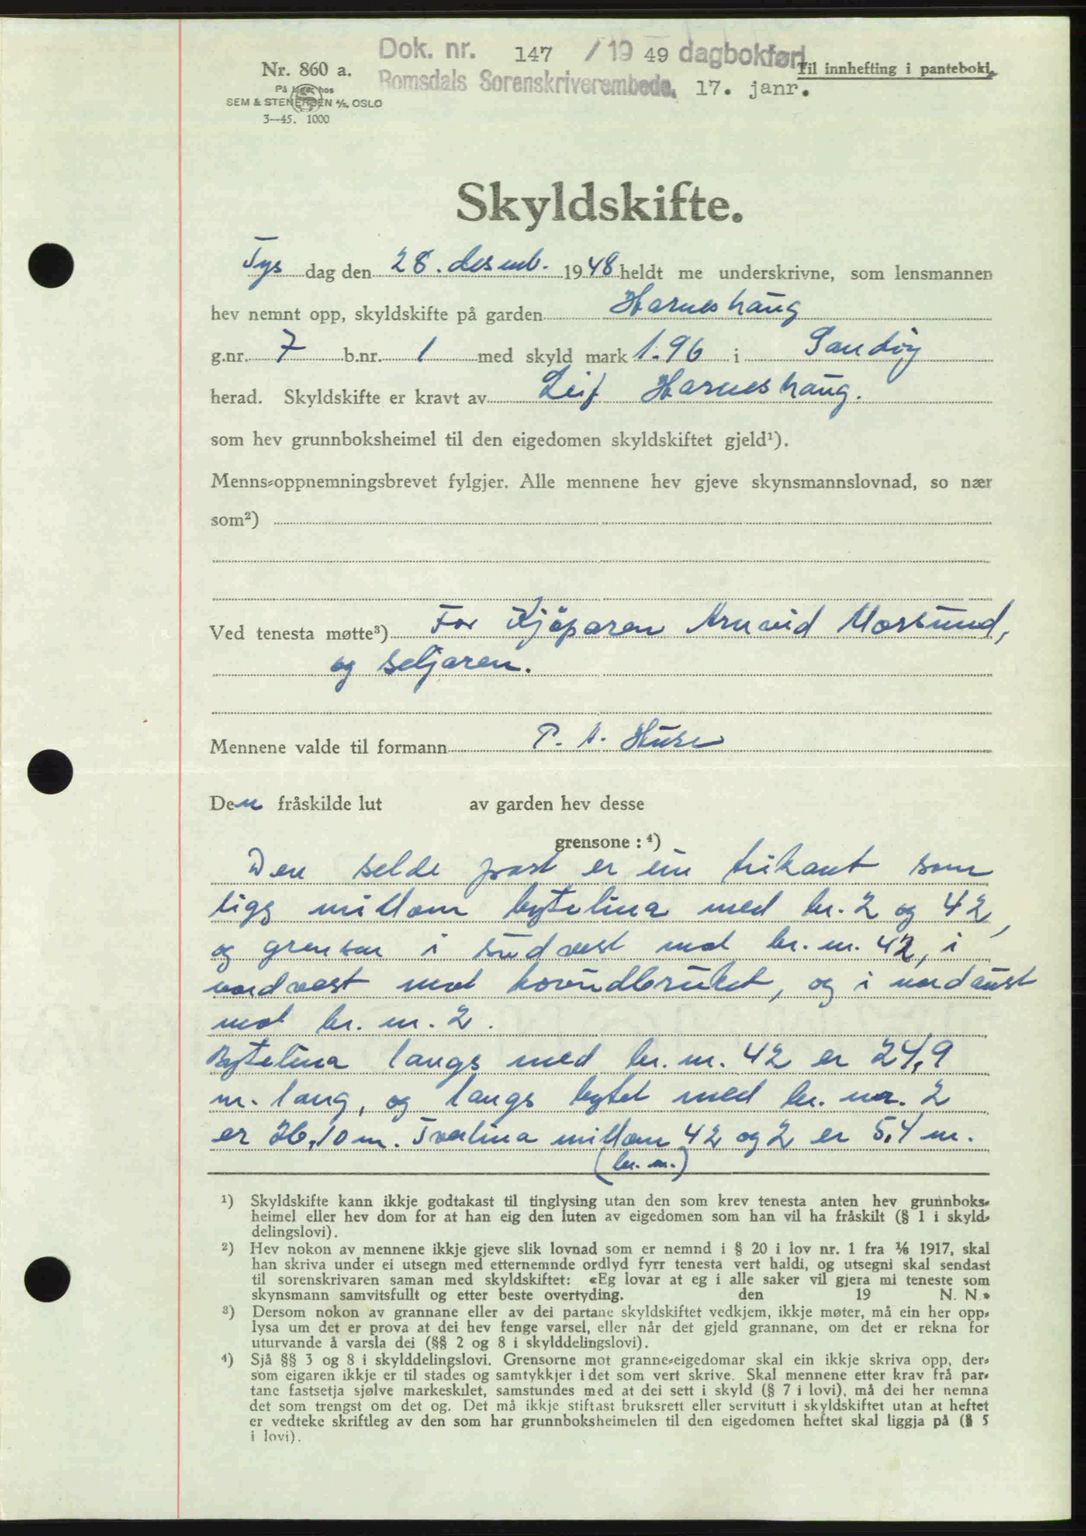 Dok. nr. 147 / 19 49 dagbokført
Nr. 860 a.
Til innhefting i panteboki.
På lager hos
Romsdals Sorenskriverembede, 17. janr.
SEM & STENERSEN A/S. OSLO
3—45. 1000
Skyldskifte.
Tys dag den 28. desemb. 1948 heldt me underskrivne, som lensmannen
hev nemnt opp, skyldskifte på garden Harneshaug
g.nr. 7 b.nr. 1 med skyld mark 1.96 i Sandøy
herad. Skyldskifte er kravt av Leif Harneshaug.
som hev grunnboksheimel til den eigedomen skyldskiftet gjeld¹).
Menns-oppnemningsbrevet fylgjer. Alle mennene hev gjeve skynsmannslovnad, so nær
som²)
Ved tenesta møtte³) For Kjöparen Arnvid Morsund,
og seljaren.
Mennene valde til formann P. A. Huse
Den fråskilde lut av garden hev desse
grensone : ⁴)
Den selde part er ein trikant som
ligg millom bytelina med br. 2 og 42,
og grensar i sudvest mot br. nr. 42, i
nordvest mot hovudbruket, og i nordaust
mot br. nr. 2.
Bytelina langs med br. nr. 42 er 24,9
m. lang, og langs bytet med br. nr. 2
er 26,10 m. Tverlina millom 42 og 2 er 5,4 m.
(br. nr.)
¹) Skyldskifte kann ikkje godtakast til tinglysing utan den som krev tenesta anten hev grunnboks-
heimel eller hev dom for at han eig den luten av eigedomen som han vil ha fråskilt (§ 1 i skyld-
delingslovi).
²) Hev nokon av mennene ikkje gjeve slik lovnad som er nemnd i § 20 i lov nr. 1 fra 1/6 1917, skal
han skriva under ei utsegn med etternemnde ordlyd fyrr tenesta vert haldi, og utsegni skal sendast
til sorenskrivaren saman med skyldskiftet: «Eg lovar at eg i alle saker vil gjera mi teneste som
skynsmann samvitsfullt og etter beste overtyding. den 19 N. N.»
³) Dersom nokon av grannane eller av dei partane skyldskiftet vedkjem, ikkje møter, må ein her opp-
lysa um det er prova at dei hev fenge varsel, eller når det gjeld grannane, om det er rekna for
uturvande å varsla dei (§§ 2 og 8 i skylddelingslovi).
⁴) Sjå §§ 3 og 8 i skylddelingslovi. Grensorne mot granne-eigedomar skal ein ikkje skriva opp, der-
som eigaren ikkje er til stades og samtykkjer i det som vert skrive. Skal mennene etter krav frå par-
tane fastsetja sjølve markeskilet, samstundes med at dei sett i skyld (§ 7 i lovi), må dei her nemna
det som trengst om det og. Det må ikkje stiftast bruksrett eller servitutt i skyldskiftet utan at heftet
er vedteke skriftleg av den som har grunnboksheimelen til den eigedomen heftet skal liggja på (§ 5
i lovi).